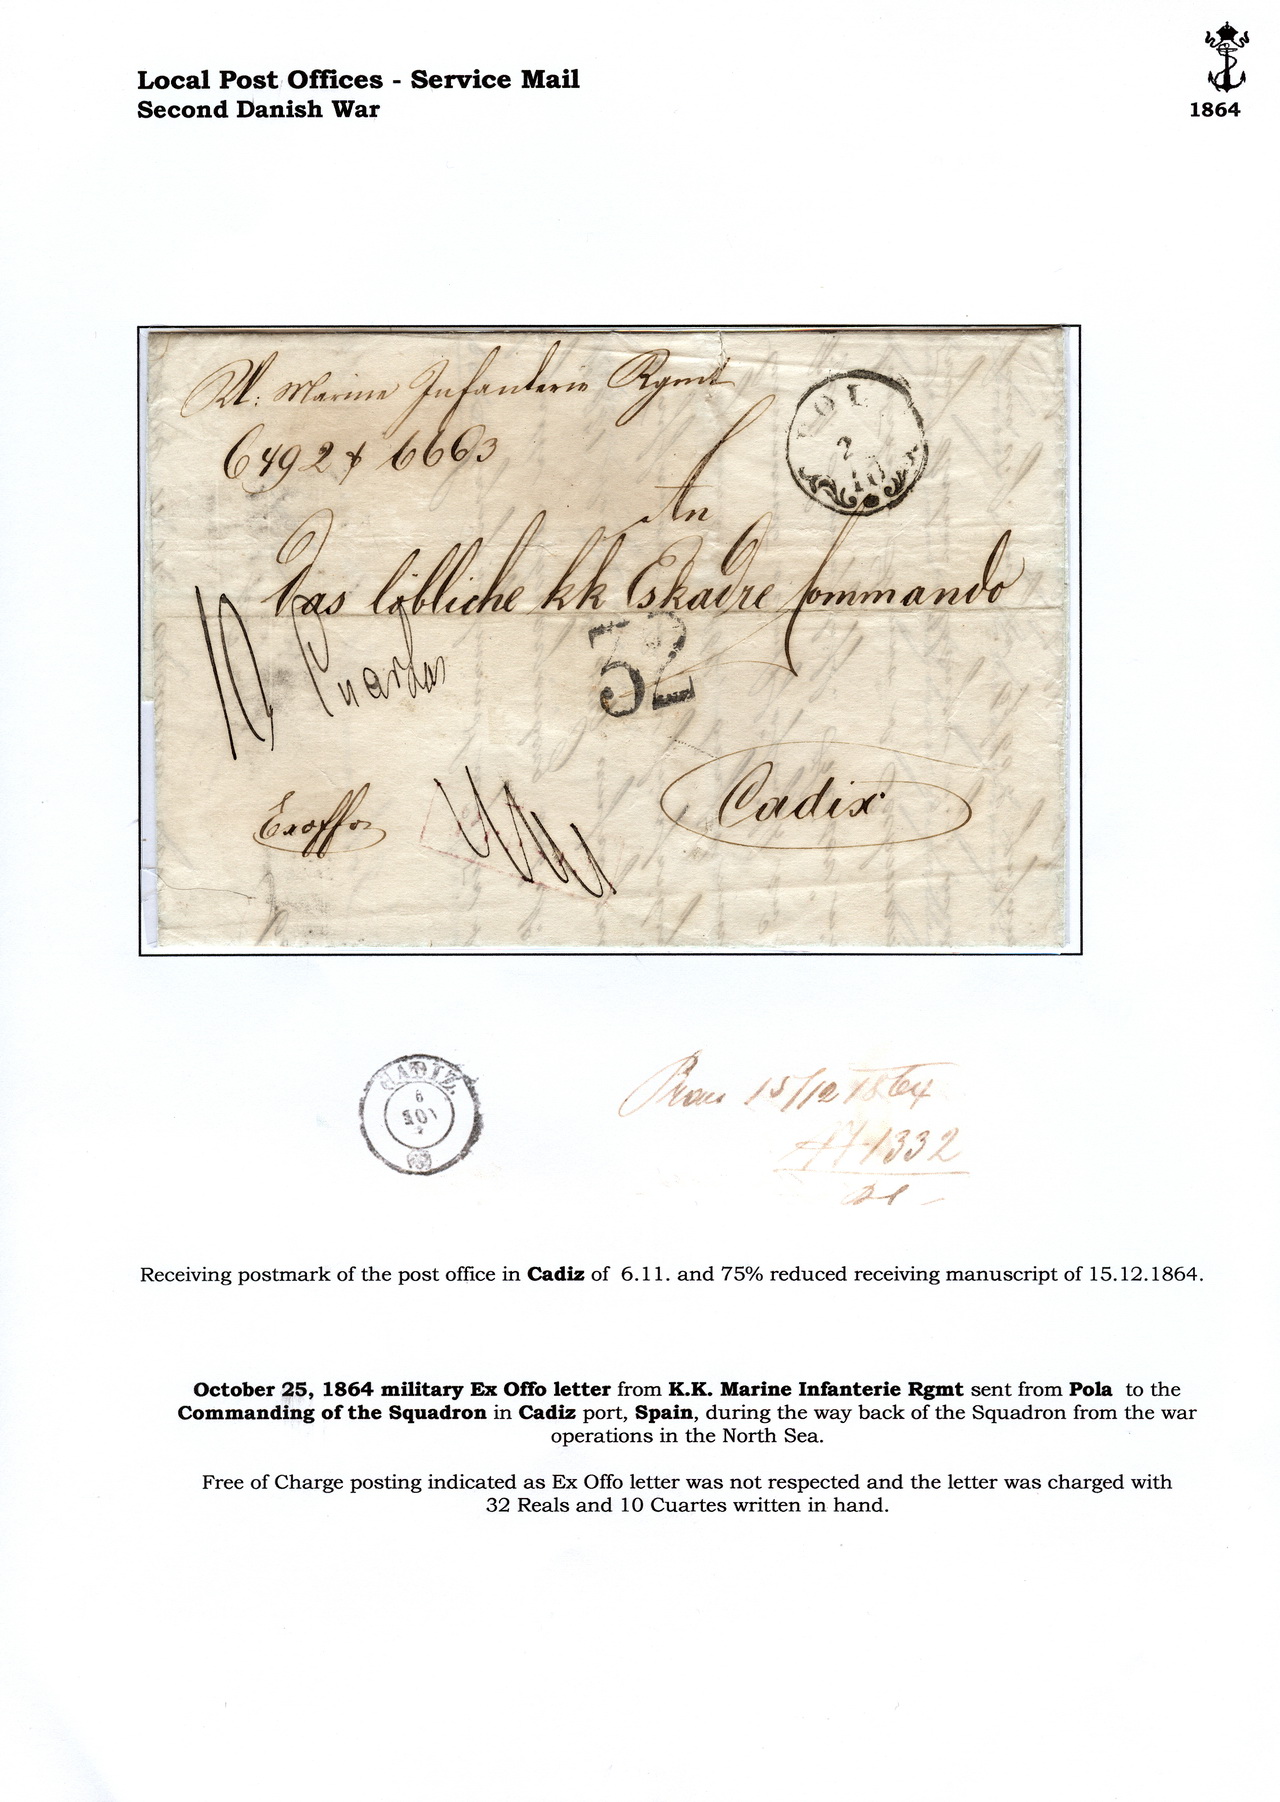 Local Post Offices - Service Mail
Second Danish War
1864
Marine Infanterie Rgmt
6492 & 6663
POL
2
10
An
Das löbliche kk Eskadre Commando
10 Cuartos
32
Exoffo
Cadix
CADIZ
6
NOV
15/12 1864
1332
Receiving postmark of the post office in Cadiz of 6.11. and 75% reduced receiving manuscript of 15.12.1864.
October 25, 1864 military Ex Offo letter from K.K. Marine Infanterie Rgmt sent from Pola to the
Commanding of the Squadron in Cadiz port, Spain, during the way back of the Squadron from the war
operations in the North Sea.
Free of Charge posting indicated as Ex Offo letter was not respected and the letter was charged with
32 Reals and 10 Cuartes written in hand.